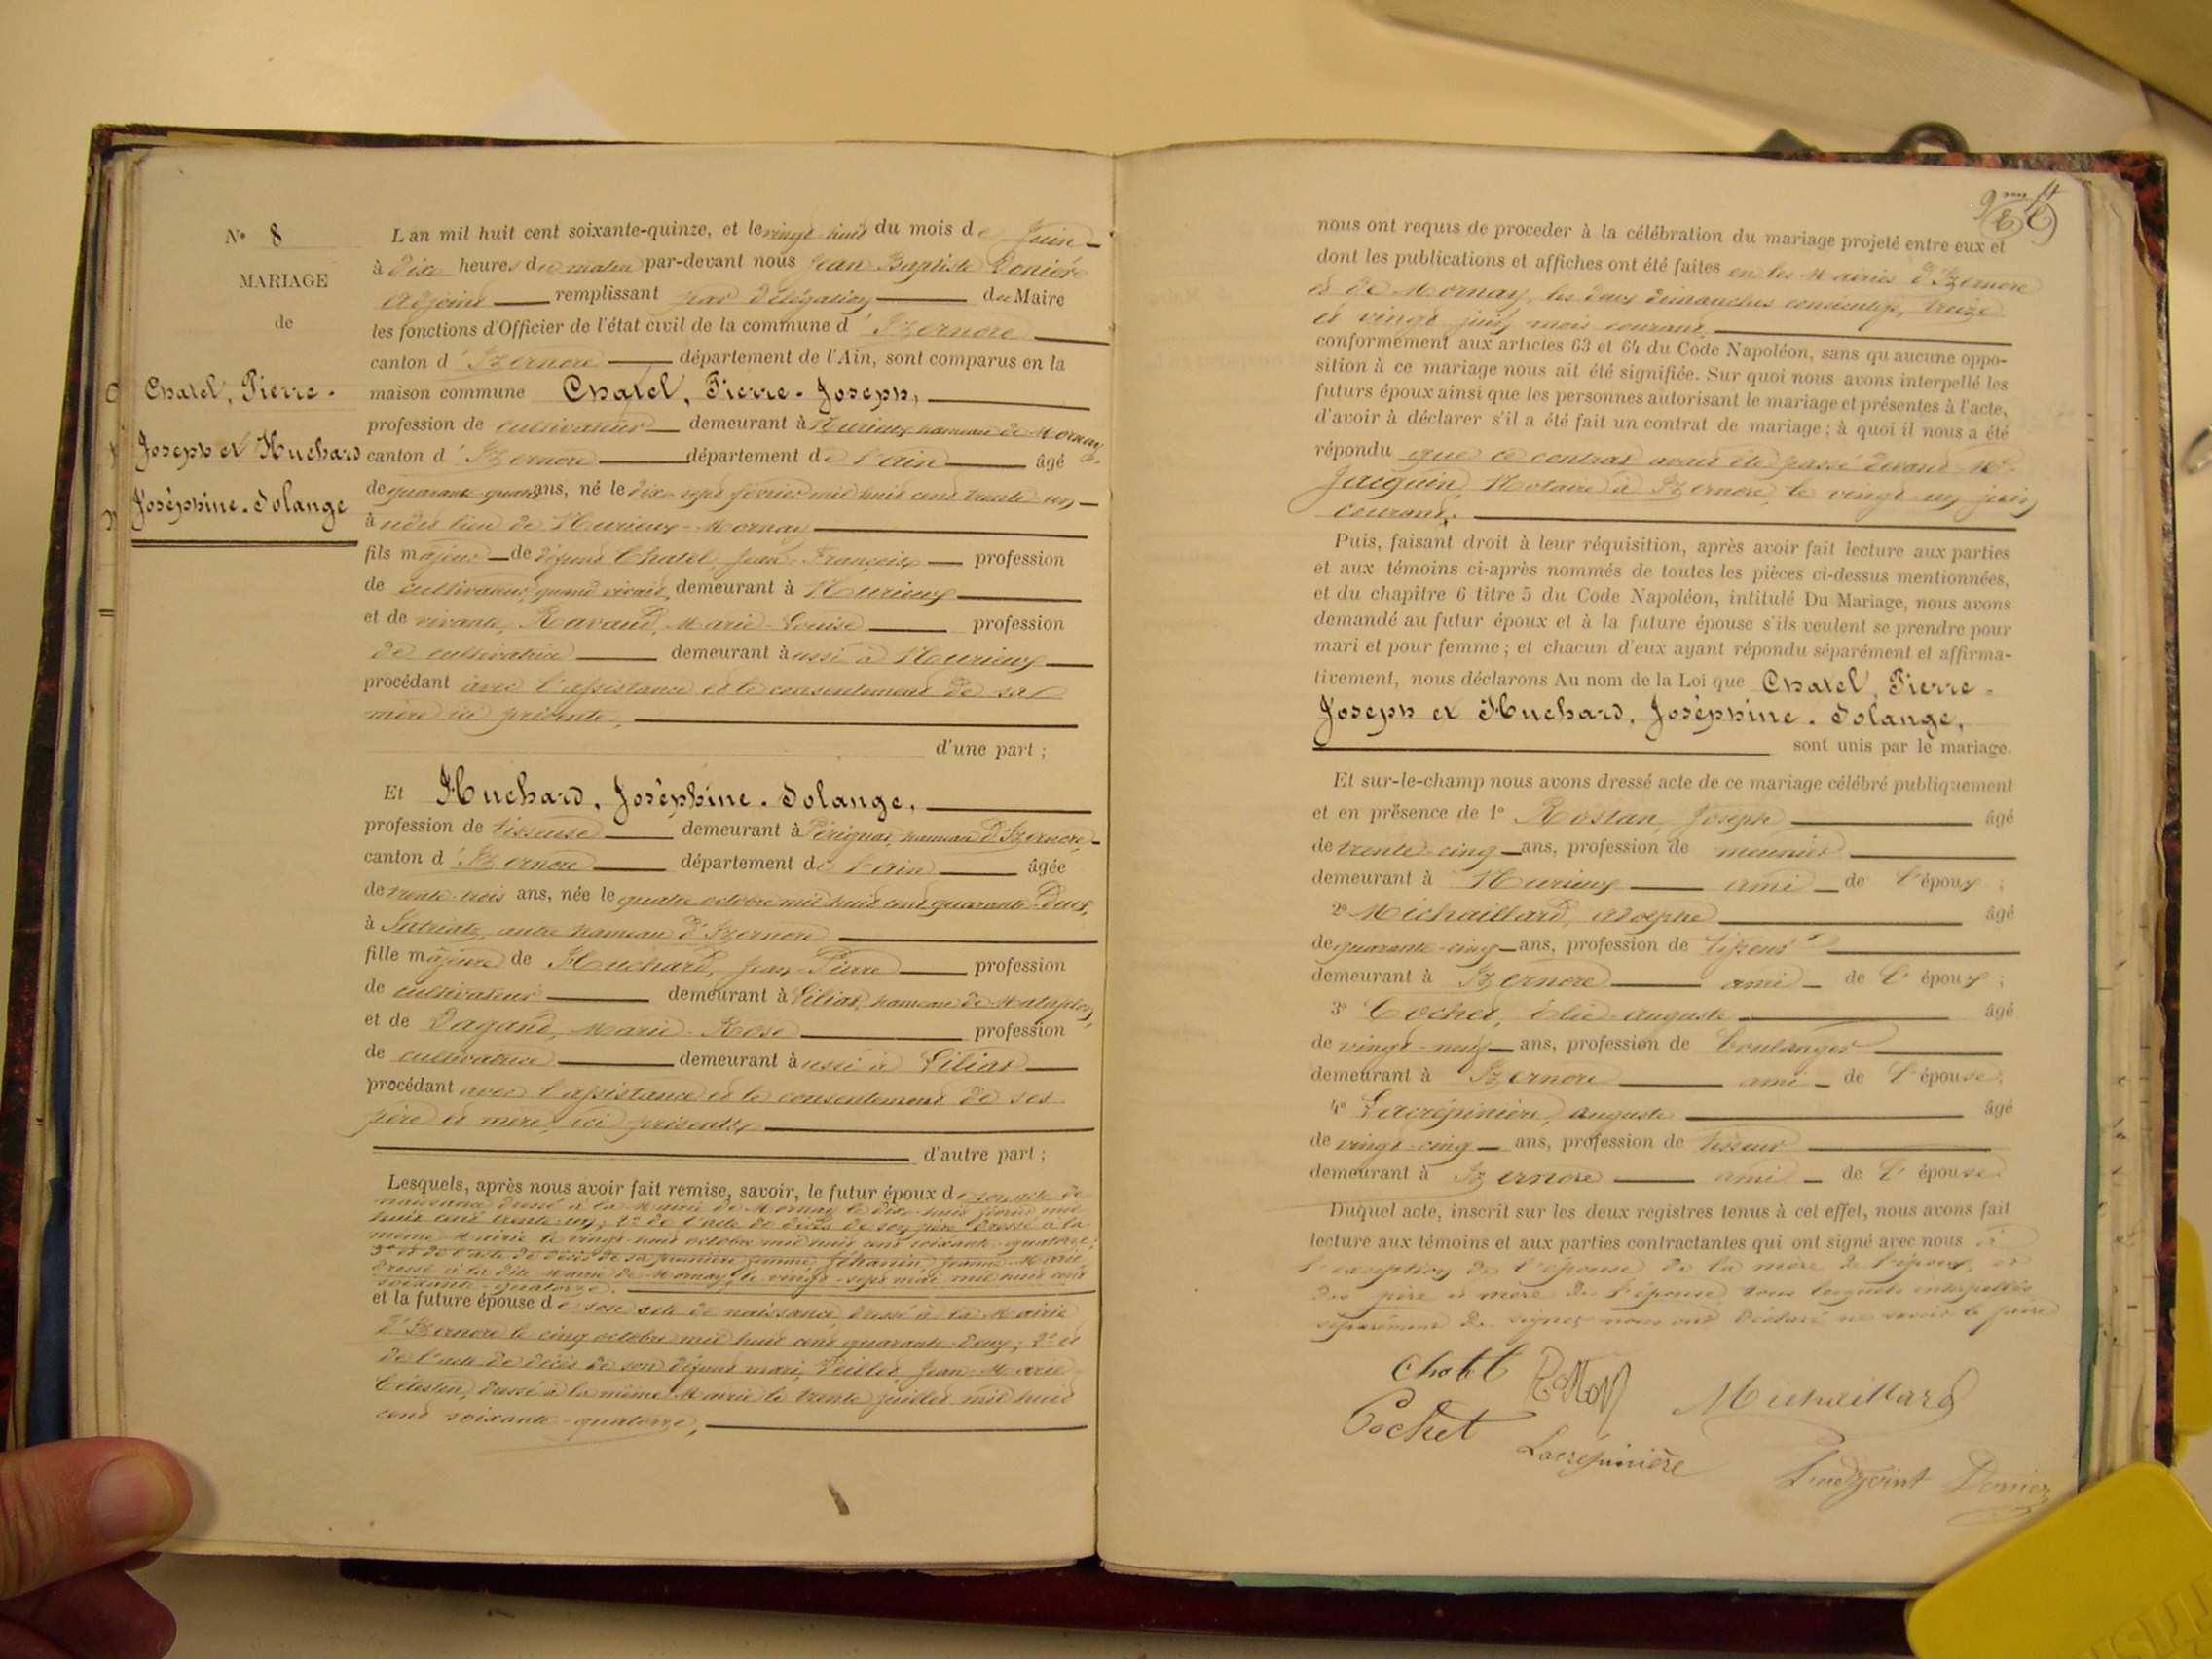 N° 8
MARIAGE
de
Chatel, Pierre-
Joseph et Huchard
Joséphine-Solange
L'an mil huit cent soixante-quinze, et le vingt-huit du mois de Juin
à dix heures du matin par-devant nous Jean Baptiste Donier
adjoint remplissant par délégation du Maire
les fonctions d'Officier de l'état civil de la commune d'Izernore
canton d'Izernore département de l'Ain, sont comparus en la
maison commune Chatel, Pierre-Joseph,
profession de cultivateur demeurant à Heurieux hameau de Mornay
canton d'Izernore département de l'ain âgé
de quarante quatre ans, né le dix-sept février mil huit cent trente-un
à udit lieu de Heurieux-Mornay
fils majeur de défunt Chatel, Jean-François profession
de cultivateur, quand vivait, demeurant à Heurieux
et de vivante, Ravaud, Marie-Louise profession
de cultivatrice demeurant àussi à Heurieux
procédant avec l'assistance et le consentement de sa
mère ici présente,
d'une part ;
Et Huchard, Joséphine-Solange,
profession de tisseuse demeurant à Pérignat, hameau d'Izernore
canton d'Izernore département de l'ain âgée
de trente-trois ans, née le quatre octobre mil huit cent quarante-deux,
à Intriat, autre hameau d'Izernore
fille majeure de Huchard, Jean-Pierre profession
de cultivateur demeurant à Lilias, hameau de
et de Dagand, Marie-Rose profession
de cultivatrice demeurant àussi à Lilias
procédant avec l'assistance et le consentement de ses
père et mère, ici présents
d'autre part ;
Lesquels, après nous avoir fait remise, savoir, le futur époux de son acte de
naissance dressé à la Mairie de Mornay le dix-huit février mil
huit cent trente-un; 2° de l'acte de décès de son père dressé à la
même Mairie le vingt-huit octobre mil huit cent soixante-quatorze;
3° et de l'acte de décès de sa première femme, Jéhanin, Jeanne-Marie,
dressé à la dite Mairie de Mornay, le vingt-sept mai mil huit cent
soixante-quatorze.
et la future épouse de son acte de naissance dressé à la Mairie
d'Izernore le cinq octobre mil huit cent quarante-deux; 2° et
de l'acte de décès de son défunt mari, Jean-Marie
Célestin, dressé à la même Mairie le trente juillet mil huit
cent soixante-quatorze,
nous ont requis de proceder à la célébration du mariage projeté entre eux et
dont les publications et affiches ont été faites en les Mairies d'Izernore
et de Mornay, les deux dimanches consécutifs, treize
et vingt juin, mois courant,
conformément aux articles 63 et 64 du Code Napoléon, sans qu'aucune oppo-
sition à ce mariage nous ait été signifiée. Sur quoi nous avons interpellé les
futurs époux ainsi que les personnes autorisant le mariage et présentes à l'acte,
d'avoir à déclarer s'il a été fait un contrat de mariage ; à quoi il nous a été
répondu que ce contrat avait été passé devant Me
Jacquin, Notaire à Izernore, le vingt-un juin
courant.
Puis, faisant droit à leur réquisition, après avoir fait lecture aux parties
et aux témoins ci-après nommés de toutes les pièces ci-dessus mentionnées,
et du chapitre 6 titre 5 du Code Napoléon, intitulé Du Mariage, nous avons
demandé au futur époux et à la future épouse s'ils veulent se prendre pour
mari et pour femme ; et chacun d'eux ayant répondu séparément et affirma-
tivement, nous déclarons Au nom de la Loi que Chatel, Pierre-
Joseph et Huchard, Joséphine-Solange,
sont unis par le mariage.
Et sur-le-champ nous avons dressé acte de ce mariage célébré publiquement
et en présence de 1° Rostan, Joseph âgé
de trente-cinq ans, profession de meunier
demeurant à Heurieux ami de l'époux ;
2° Michaillard, adolphe âgé
de quarante-cinq ans, profession de tisseur
demeurant à Izernore ami de l'époux ;
3° Cochet, Elie-auguste âgé
de vingt-neuf ans, profession de boulanger
demeurant à Izernore ami de l'épouse.
4° Lacrépinière, auguste âgé
de vingt-cinq ans, profession de tisseur
demeurant à Izernore ami de l'épouse.
Duquel acte, inscrit sur les deux registres tenus à cet effet, nous avons fait
lecture aux témoins et aux parties contractantes qui ont signé avec nous à
l'exception de l'épouse, de la mère de l'époux, et
des père et mère de l'épouse, tous lesquels interpellés
séparément de signer nous ont déclaré ne savoir le faire
Chatel
Michaillard
Cochet
Lacrépinière
L'adjoint Donier